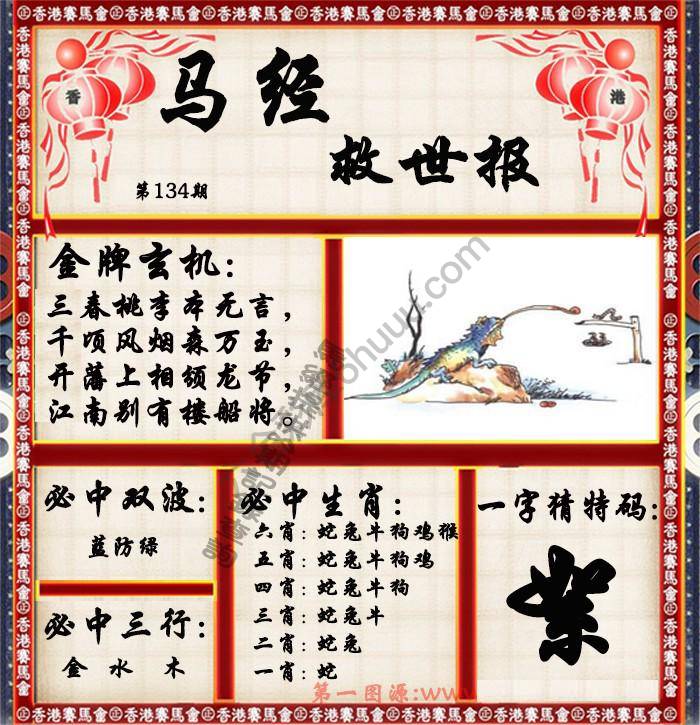 香港賽馬會
香 港
马经
救世报
第134期
金牌玄机：
三春桃李本无言，
千顷风烟森万玉，
开藩上相颁龙节，
江南别有楼船将。
必中双波：
蓝防绿
必中三行：
金 水 木
必中生肖：
六肖：蛇兔牛狗鸡猴
五肖：蛇兔牛狗鸡
四肖：蛇兔牛狗
三肖：蛇兔牛
二肖：蛇兔
一肖：蛇
一字猜特码：
第一图源:www